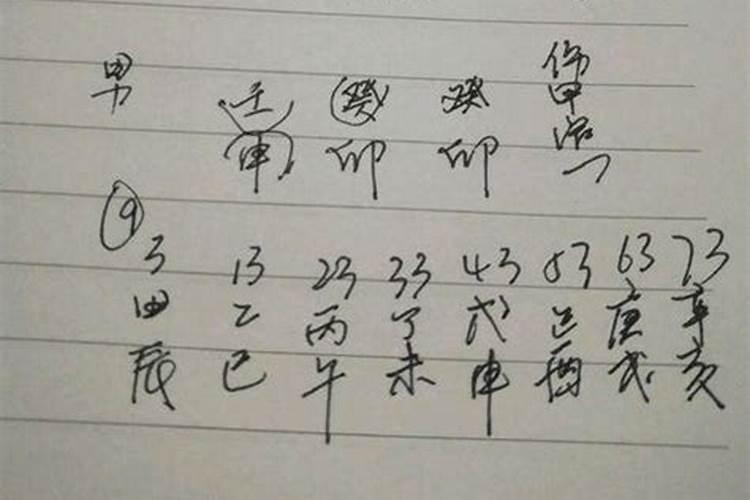 男 壬 癸 癸
申 卯 卯
3 13 23 33 43 53 63 73
甲 乙 丙 丁 戊 己 庚 辛
辰 巳 午 未 申 酉 戌 亥